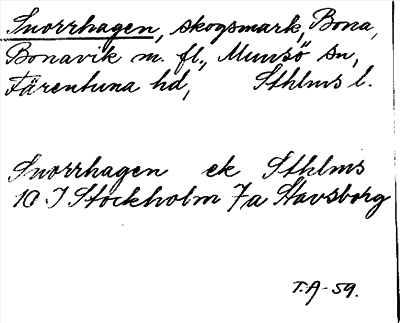 Snorrhagen, skogsmark, Bona,
Bonavik m. fl., Munsö sn,
Färentuna hd, Sthlms l.
Snorrhagen ek Sthlms
10 I Stockholm 7a Stavsborg
T.A-59.